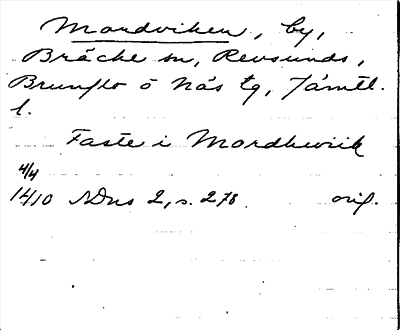 Mordviken, by,
Bräcke sn, Revsunds,
Brunflo o Näs tg, Jämtl.
l.
Faste i Mordhwiik
4/4
1410 SDns 2, s. 278. orig.